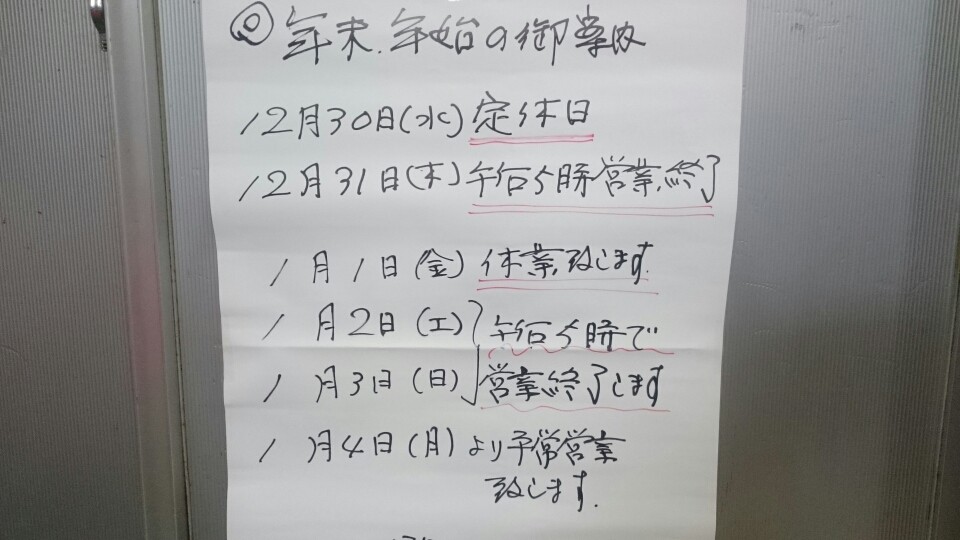 ◎年末.年始の御案内
12月30日(水)定休日
12月31日(木)午后5時営業終了
1月1日(金)休業致します.
1月2日(土)午后5時で
1月3日(日)営業終了します
1月4日(月)より予常営業
致します.